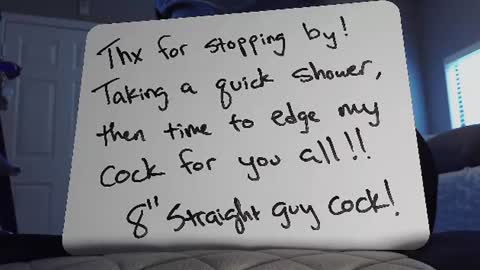 Thx for stopping by!
Taking a quick shower,
then time to edge my
cock for you all!!
8" Straight guy cock!